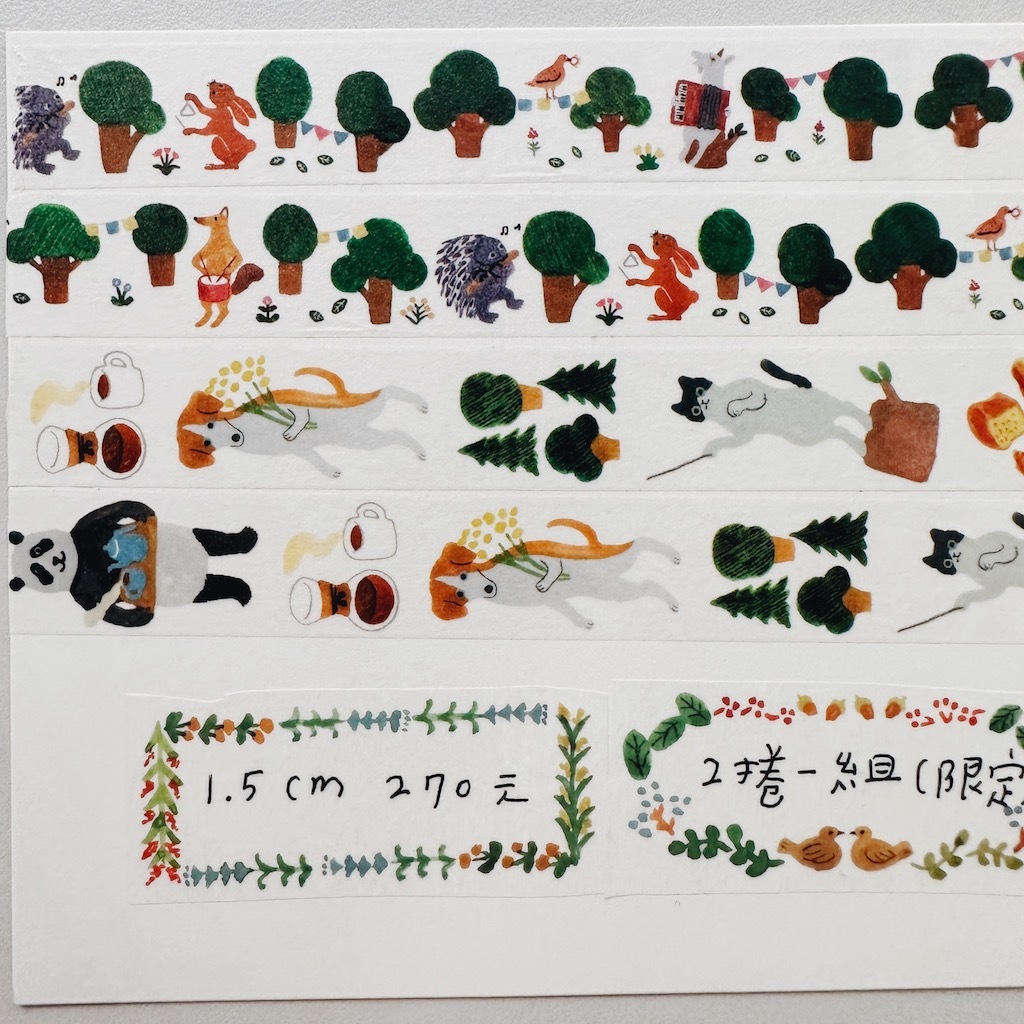 1.5cm 270元
2捲一組(限定